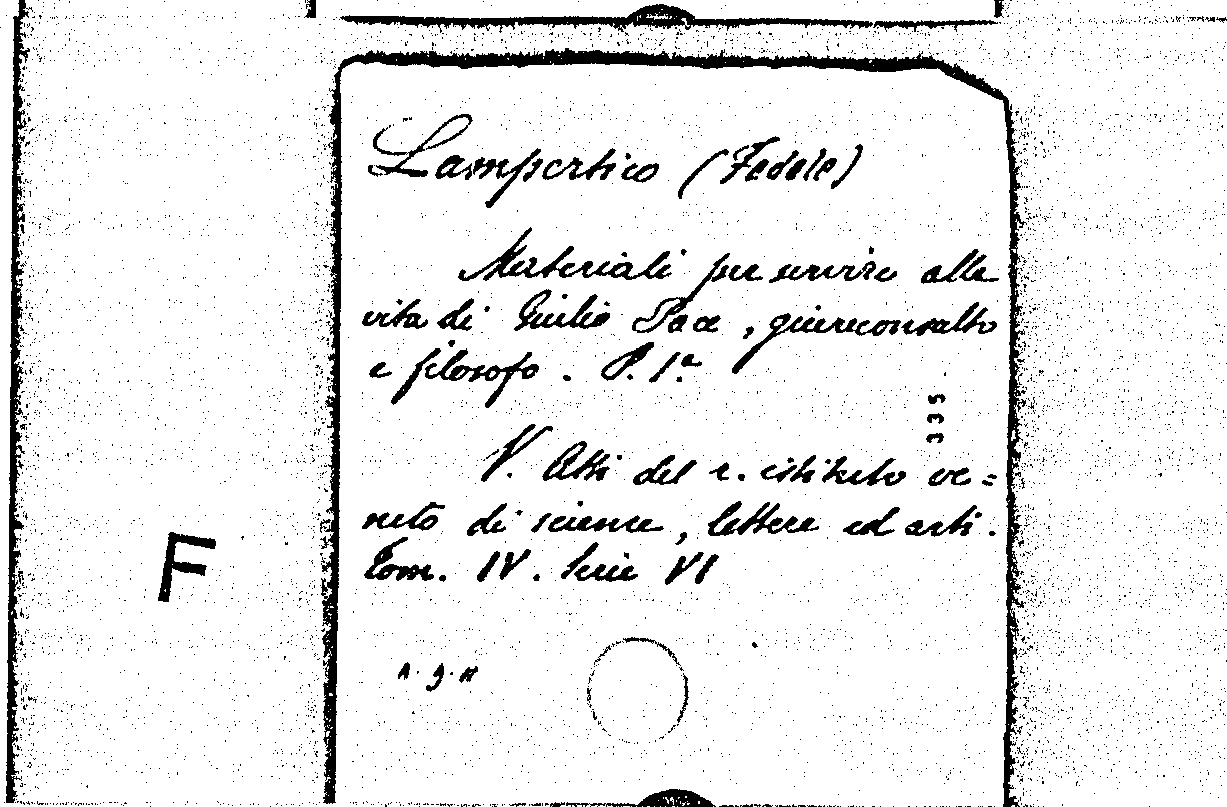 Lampertico (Fedele)
Materiali per servire alla
vita di Giulio Pace, giureconsulto
e filosofo. P. 1ª.
335
V. Atti del r. istituto ve=
neto di scienze, lettere ed arti.
Tom. IV. Serie VI
F
A. 9. H